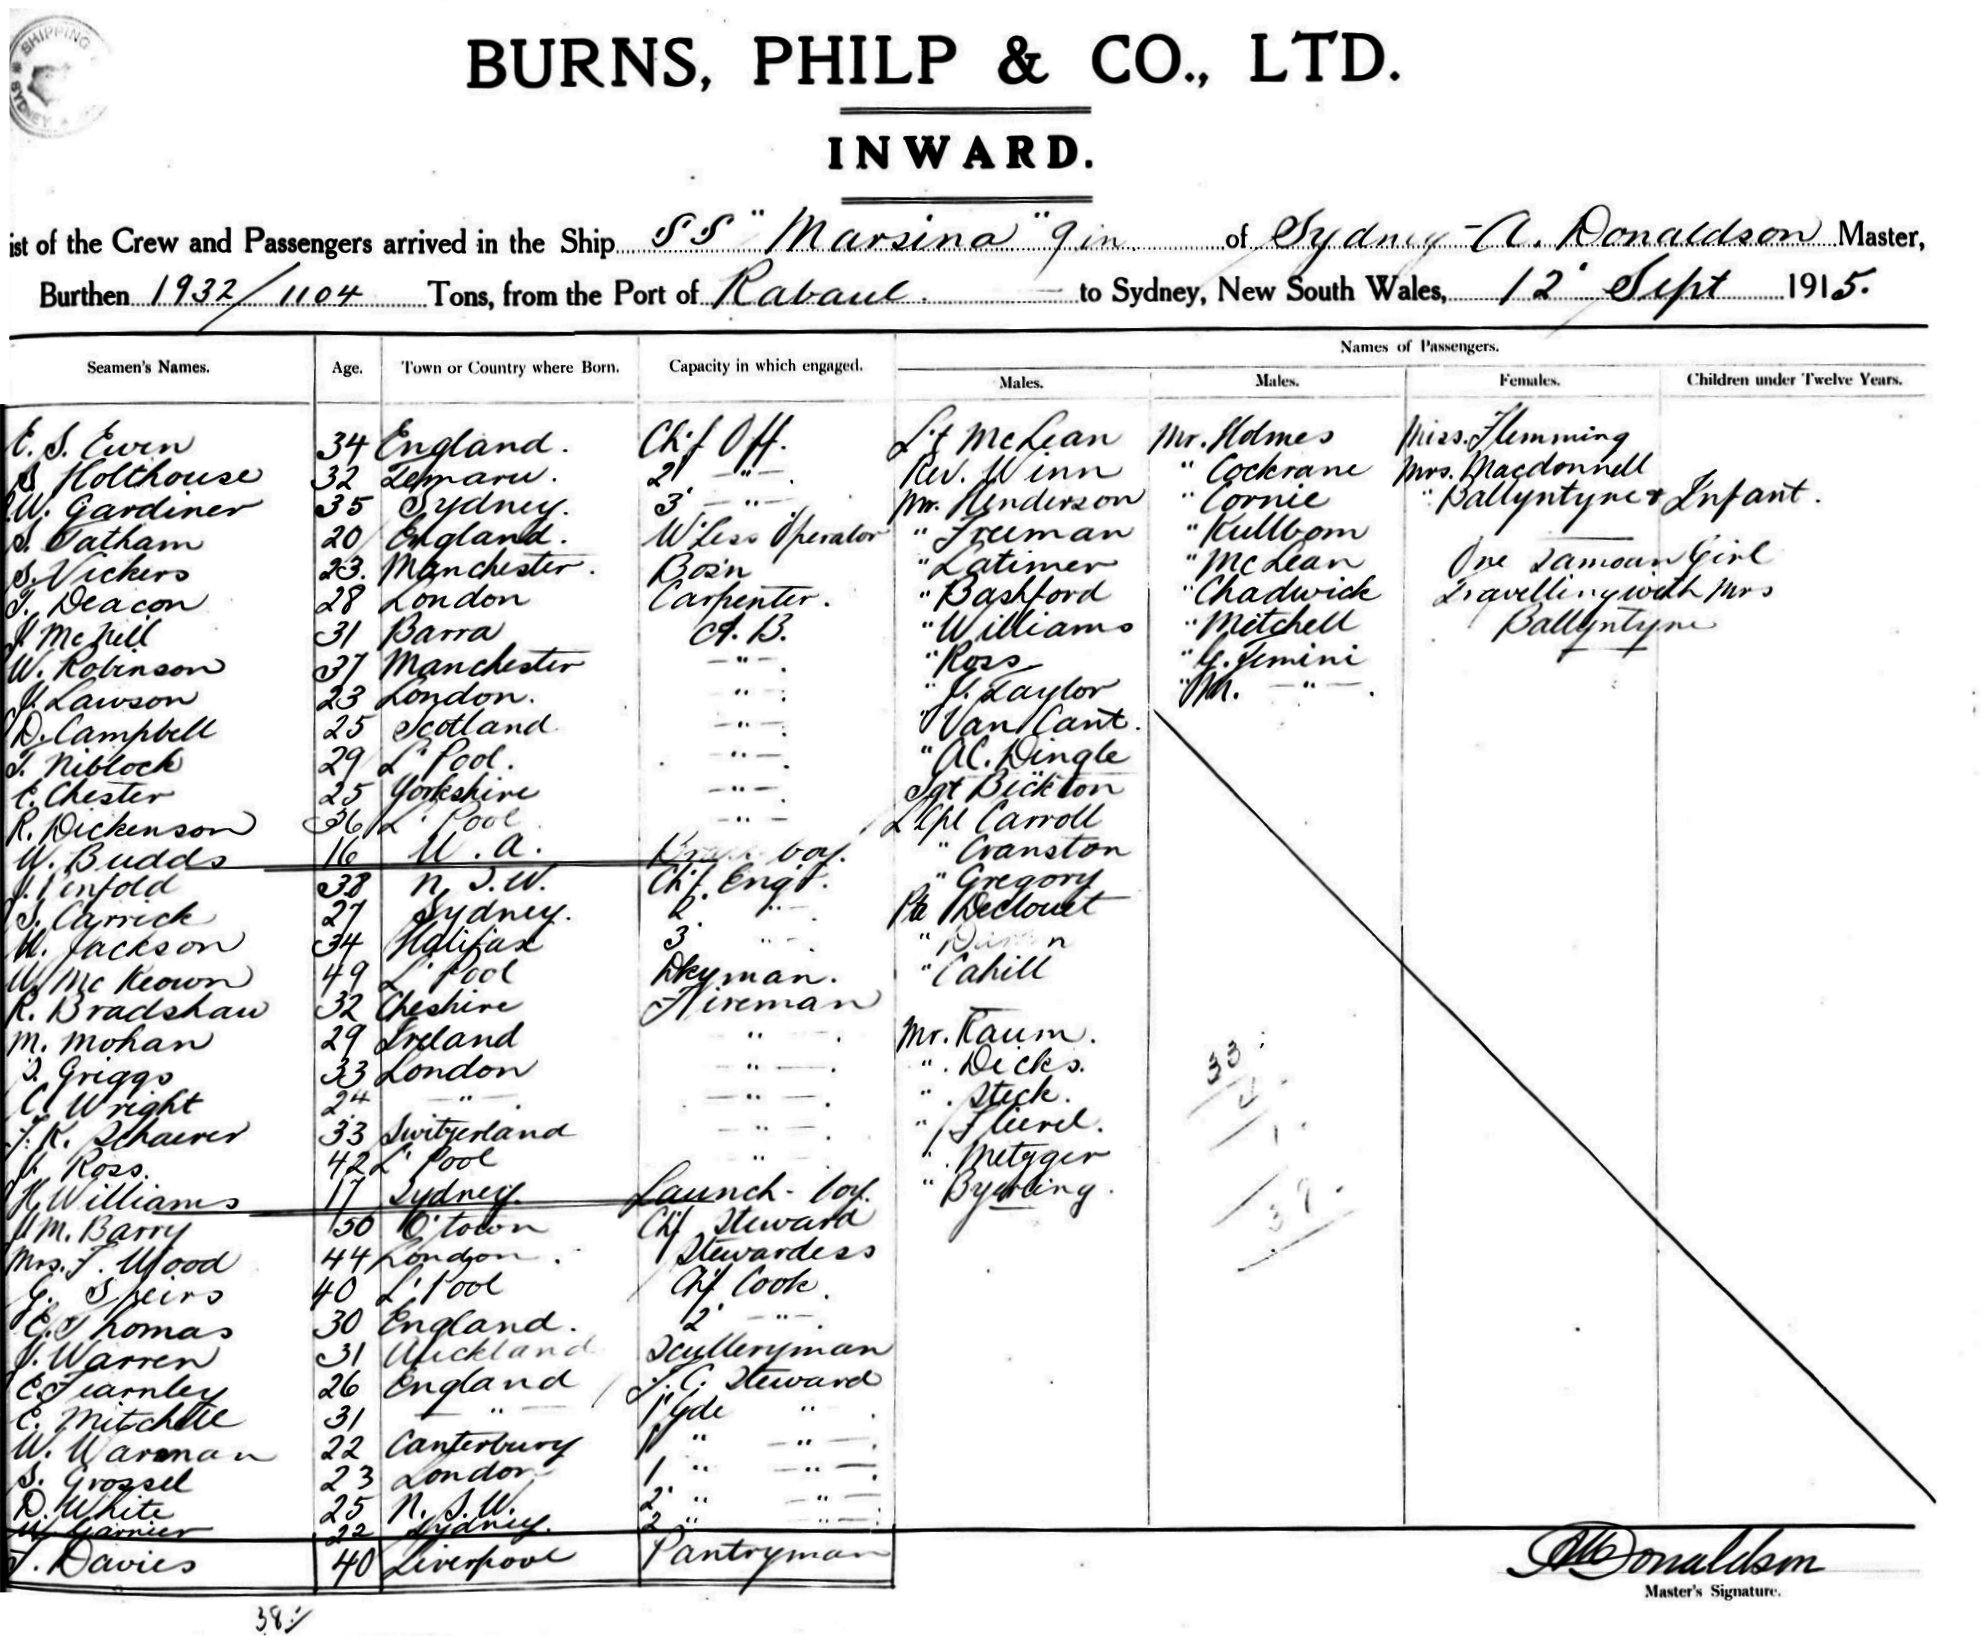 SHIPPING
SYDNEY
BURNS, PHILP & CO., LTD.
INWARD.
ist of the Crew and Passengers arrived in the Ship SS "Marsina" of Sydney - A. Donaldson Master,
Burthen 1932/1104 Tons, from the Port of Rabaul to Sydney, New South Wales, 12' Sept 1915.
Names of Passengers.
Seamen's Names. Age. Town or Country where Born. Capacity in which engaged. Males. Males. Females. Children under Twelve Years.
E. S. Ewin 34 England. Chif Off. Lt McLean Mr. Holmes Miss. Flemming
S Holthouse 32 2' -"- . Rev. Winn " Cockrane Mrs. Macdonnell
W. Gardiner 35 Sydney. 3' -"- Mr. Henderson " Cornie " Ballyntyne & Infant.
S. Tatham 20 England. W'Less Operator " Freeman " Kullbom
S. Vickers 23. Manchester. Bos'n " Latimer " McLean One Samoan Girl
T. Deacon 28 London Carpenter. " Bashford " Chadwick Travelling with Mrs
J. McNeill 31 Barra A.B. " Williams " Mitchell Ballyntyne
W. Robinson 37 Manchester -"- . " Ross " G. Jemini
J. Lawson 23 London. -"- . " J. Taylor " M. -"- .
D. Campbell 25 Scotland -"- . " Van Cant.
T. Niblock 29 L'Pool. -"- . " A.C. Dingle
C. Chester 25 Yorkshire -"- . Sgt Bickton
R. Dickenson 36 L'Pool -"- L Cpl Carroll
W. Budds 16 W.A. boy. " Cranston
J. Penfold 38 N.S.W. Chif Engr. " Gregory
S. Carrick 27 Sydney. 2' " . Pte Declouet
W. Jackson 34 Halifax 3' " - . "
W. McKeown 49 L'Pool Dkyman. " Cahill
R. Bradshaw 32 Cheshire Fireman
M. Mohan 29 Ireland " . Mr. Kaum.
S. Griggs 33 London -"- . " . Dicks.
C. Wright 24 -"- . -"- . " . Steck.
F. K. Schaerer 33 Switzerland -"- . " Flierel.
J. Ross. 42 L'Pool " . " . Metzger
H. Williams 17 Sydney. Launch-boy. " Byerling.
J. M. Barry 50 Q'town Chif Steward
Mrs. F. Wood 44 London. Stewardess
G. Speirs 40 L'Pool Chif Cook.
E. Thomas 30 England. 2' -"- .
J. Warren 31 Auckland Sculleryman
C. Fearnley 26 England F.C. Steward
C. Mitchell 31 -"- "
W. Warman 22 Canterbury 1 " -"- .
S. Grossel 23 London 1 " -"- .
D. White 25 N.S.W. 2' " -"-
W. Garnier 22 Sydney. 2 " -"- .
J. Davies 40 Liverpool Pantryman
33
2
1
39
38
A Donaldson
Master's Signature.